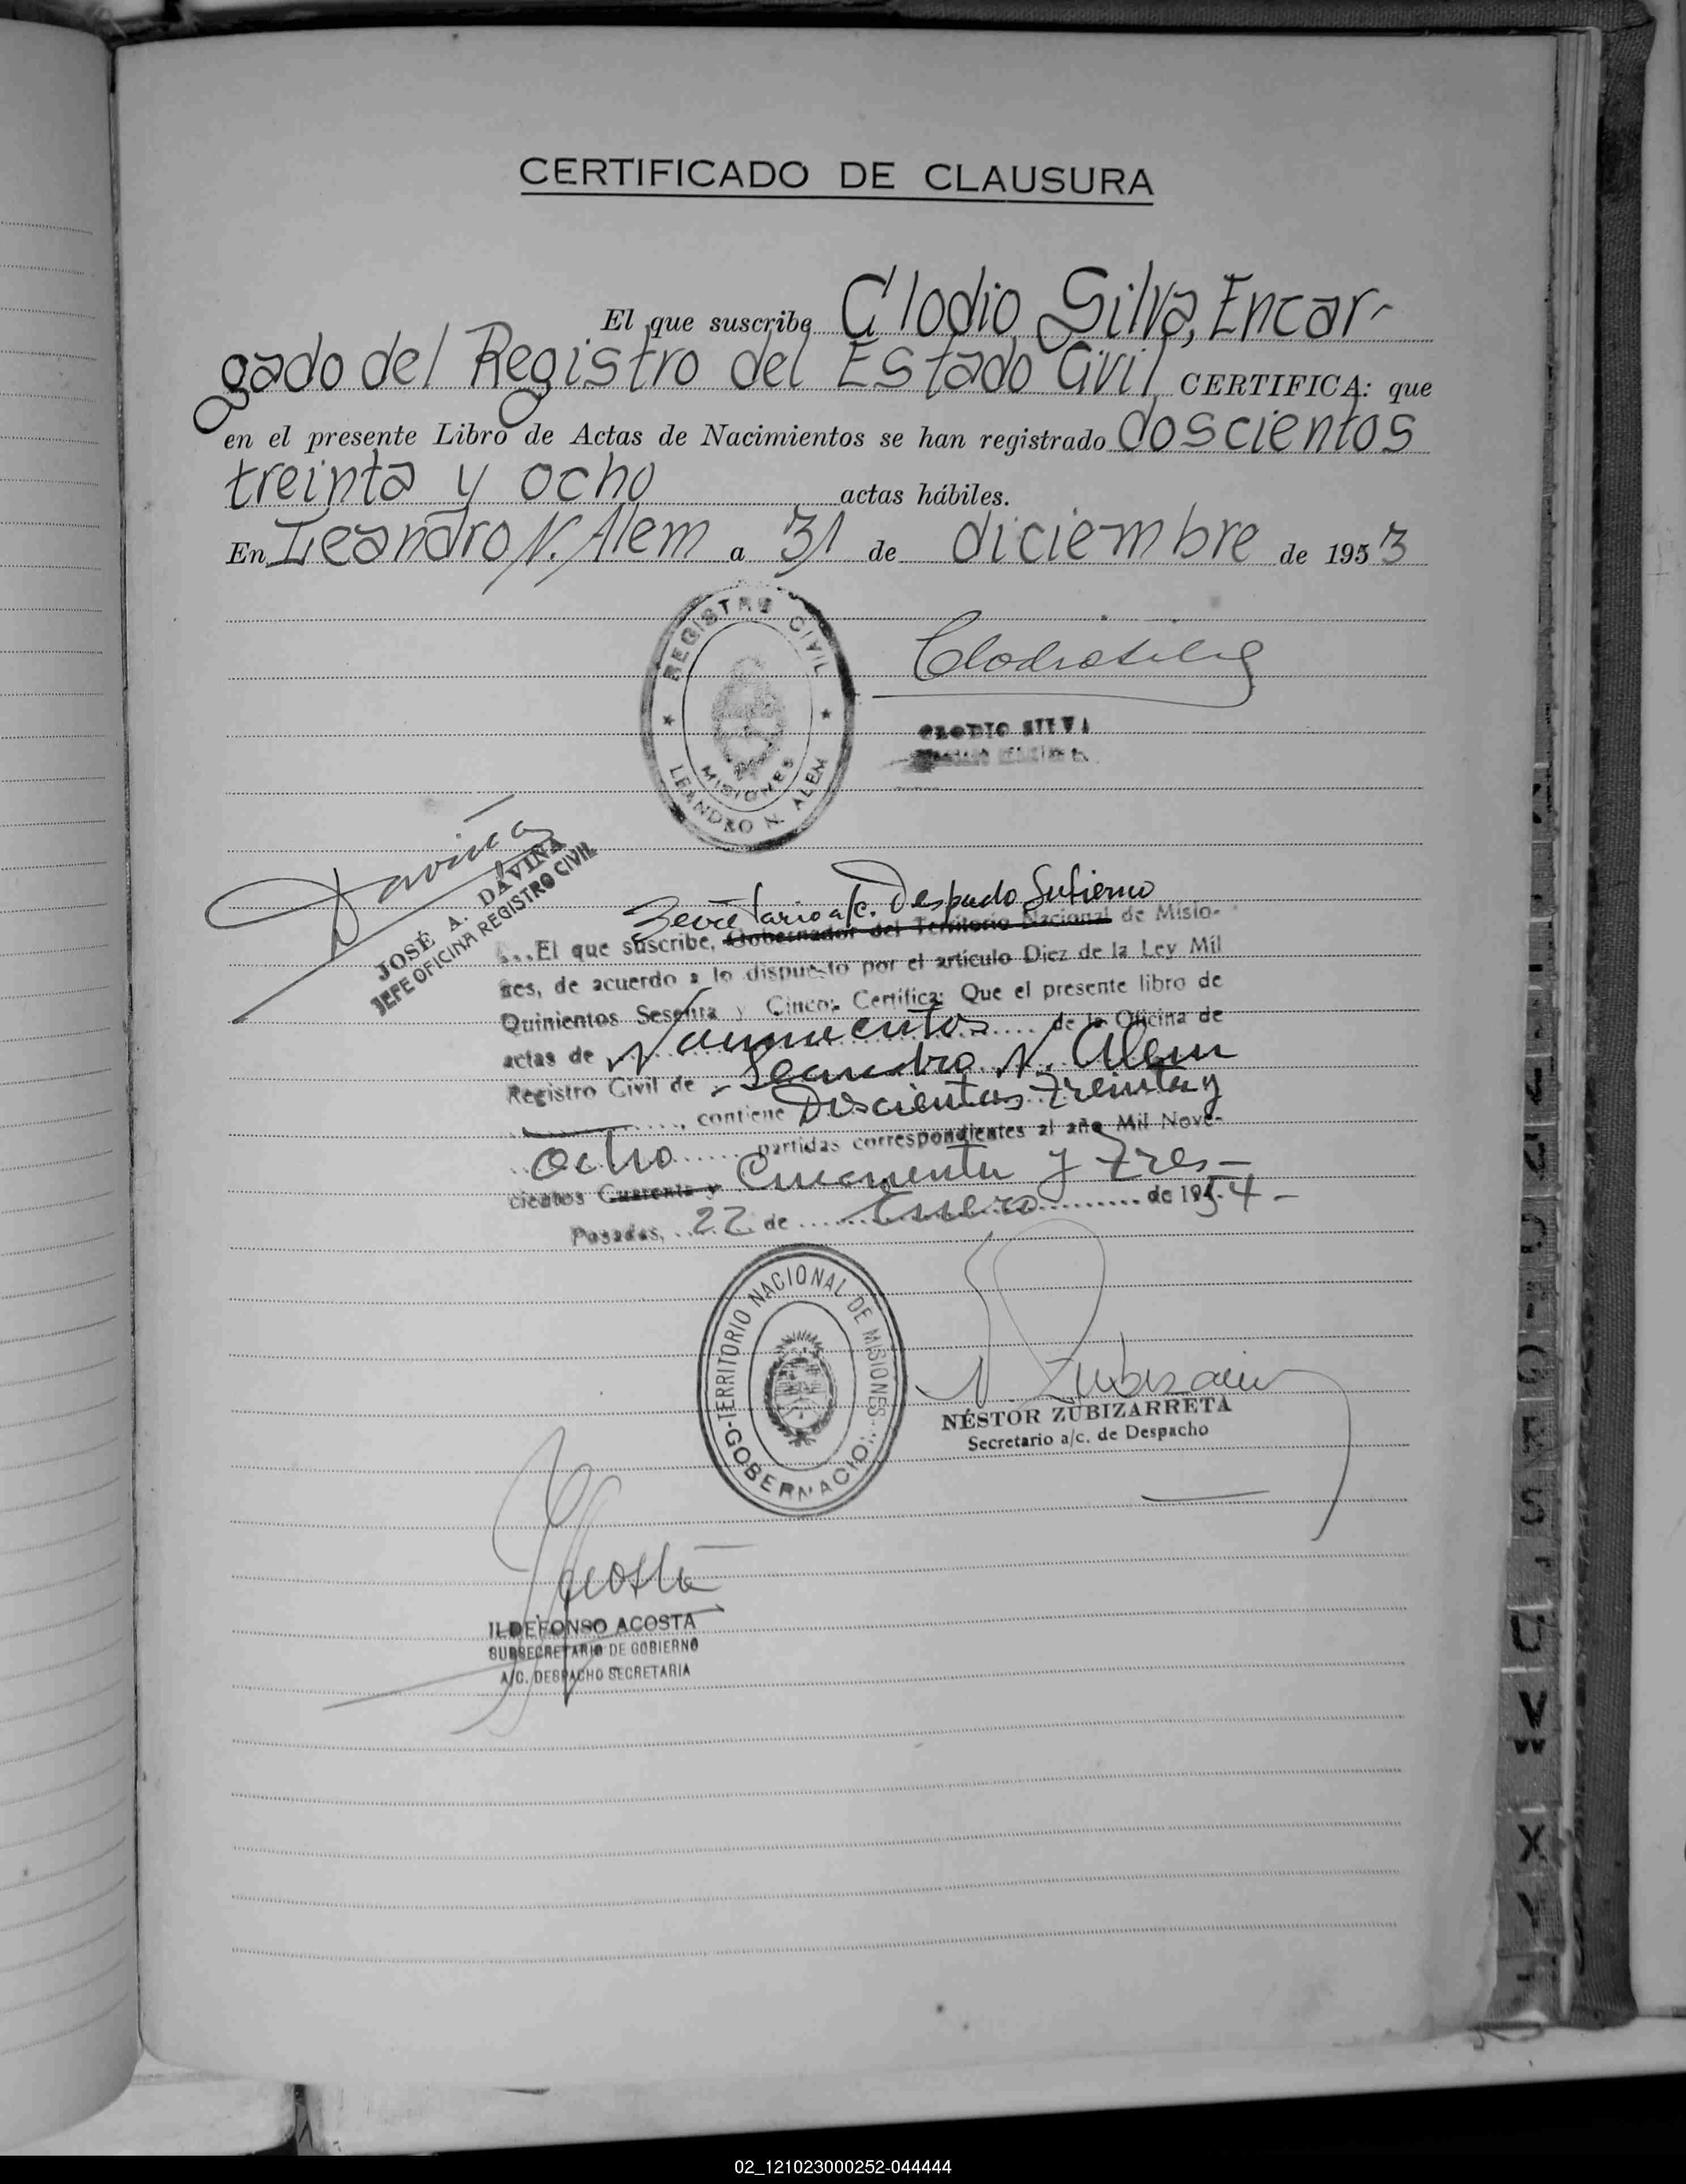 CERTIFICADO DE CLAUSURA
El que suscribe Clodio Silva, Encar-
gado del Registro del Estado Civil CERTIFICA: que
en el presente Libro de Actas de Nacimientos se han registrado doscientos
treinta y ocho actas hábiles.
En Leandro N. Alem a 31 de diciembre de 1953
REGISTRO CIVIL
MISIONES
LEANDRO N. ALEM
Clodio Silva
CLODIO SILVA
Davina
JOSÉ A. DAVIÑA
JEFE OFICINA REGISTRO CIVIL
Secretario a/c. Despacho Gobierno
El que suscribe, Gobernador del Territorio Nacional de Misio-
nes, de acuerdo a lo dispuesto por el artículo Diez de la Ley Mil
Quinientos Sesenta y Cinco; Certifica: Que el presente libro de
actas de Nacimientos de la Oficina de
Registro Civil de Leandro N. Alem
, contiene Doscientas treinta y
ocho partidas correspondientes al año Mil Nove-
cientos Cuarenta y Cincuenta y tres
Posadas, 22 de Enero de 1954
TERRITORIO NACIONAL DE MISIONES
GOBERNACIO
N Zubizarreta
NÉSTOR ZUBIZARRETA
Secretario a/c. de Despacho
Acosta
ILDEFONSO ACOSTA
SUBSECRETARIO DE GOBIERNO
A/C. DESPACHO SECRETARIA
02_121023000252-044444